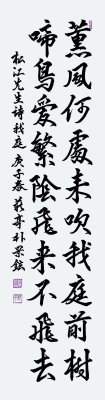 薰風何處来吹我庭前樹
啼鳥愛繁陰飛来不飛去
松江先生詩我庭 庚子春 荷亭 朴景鉉